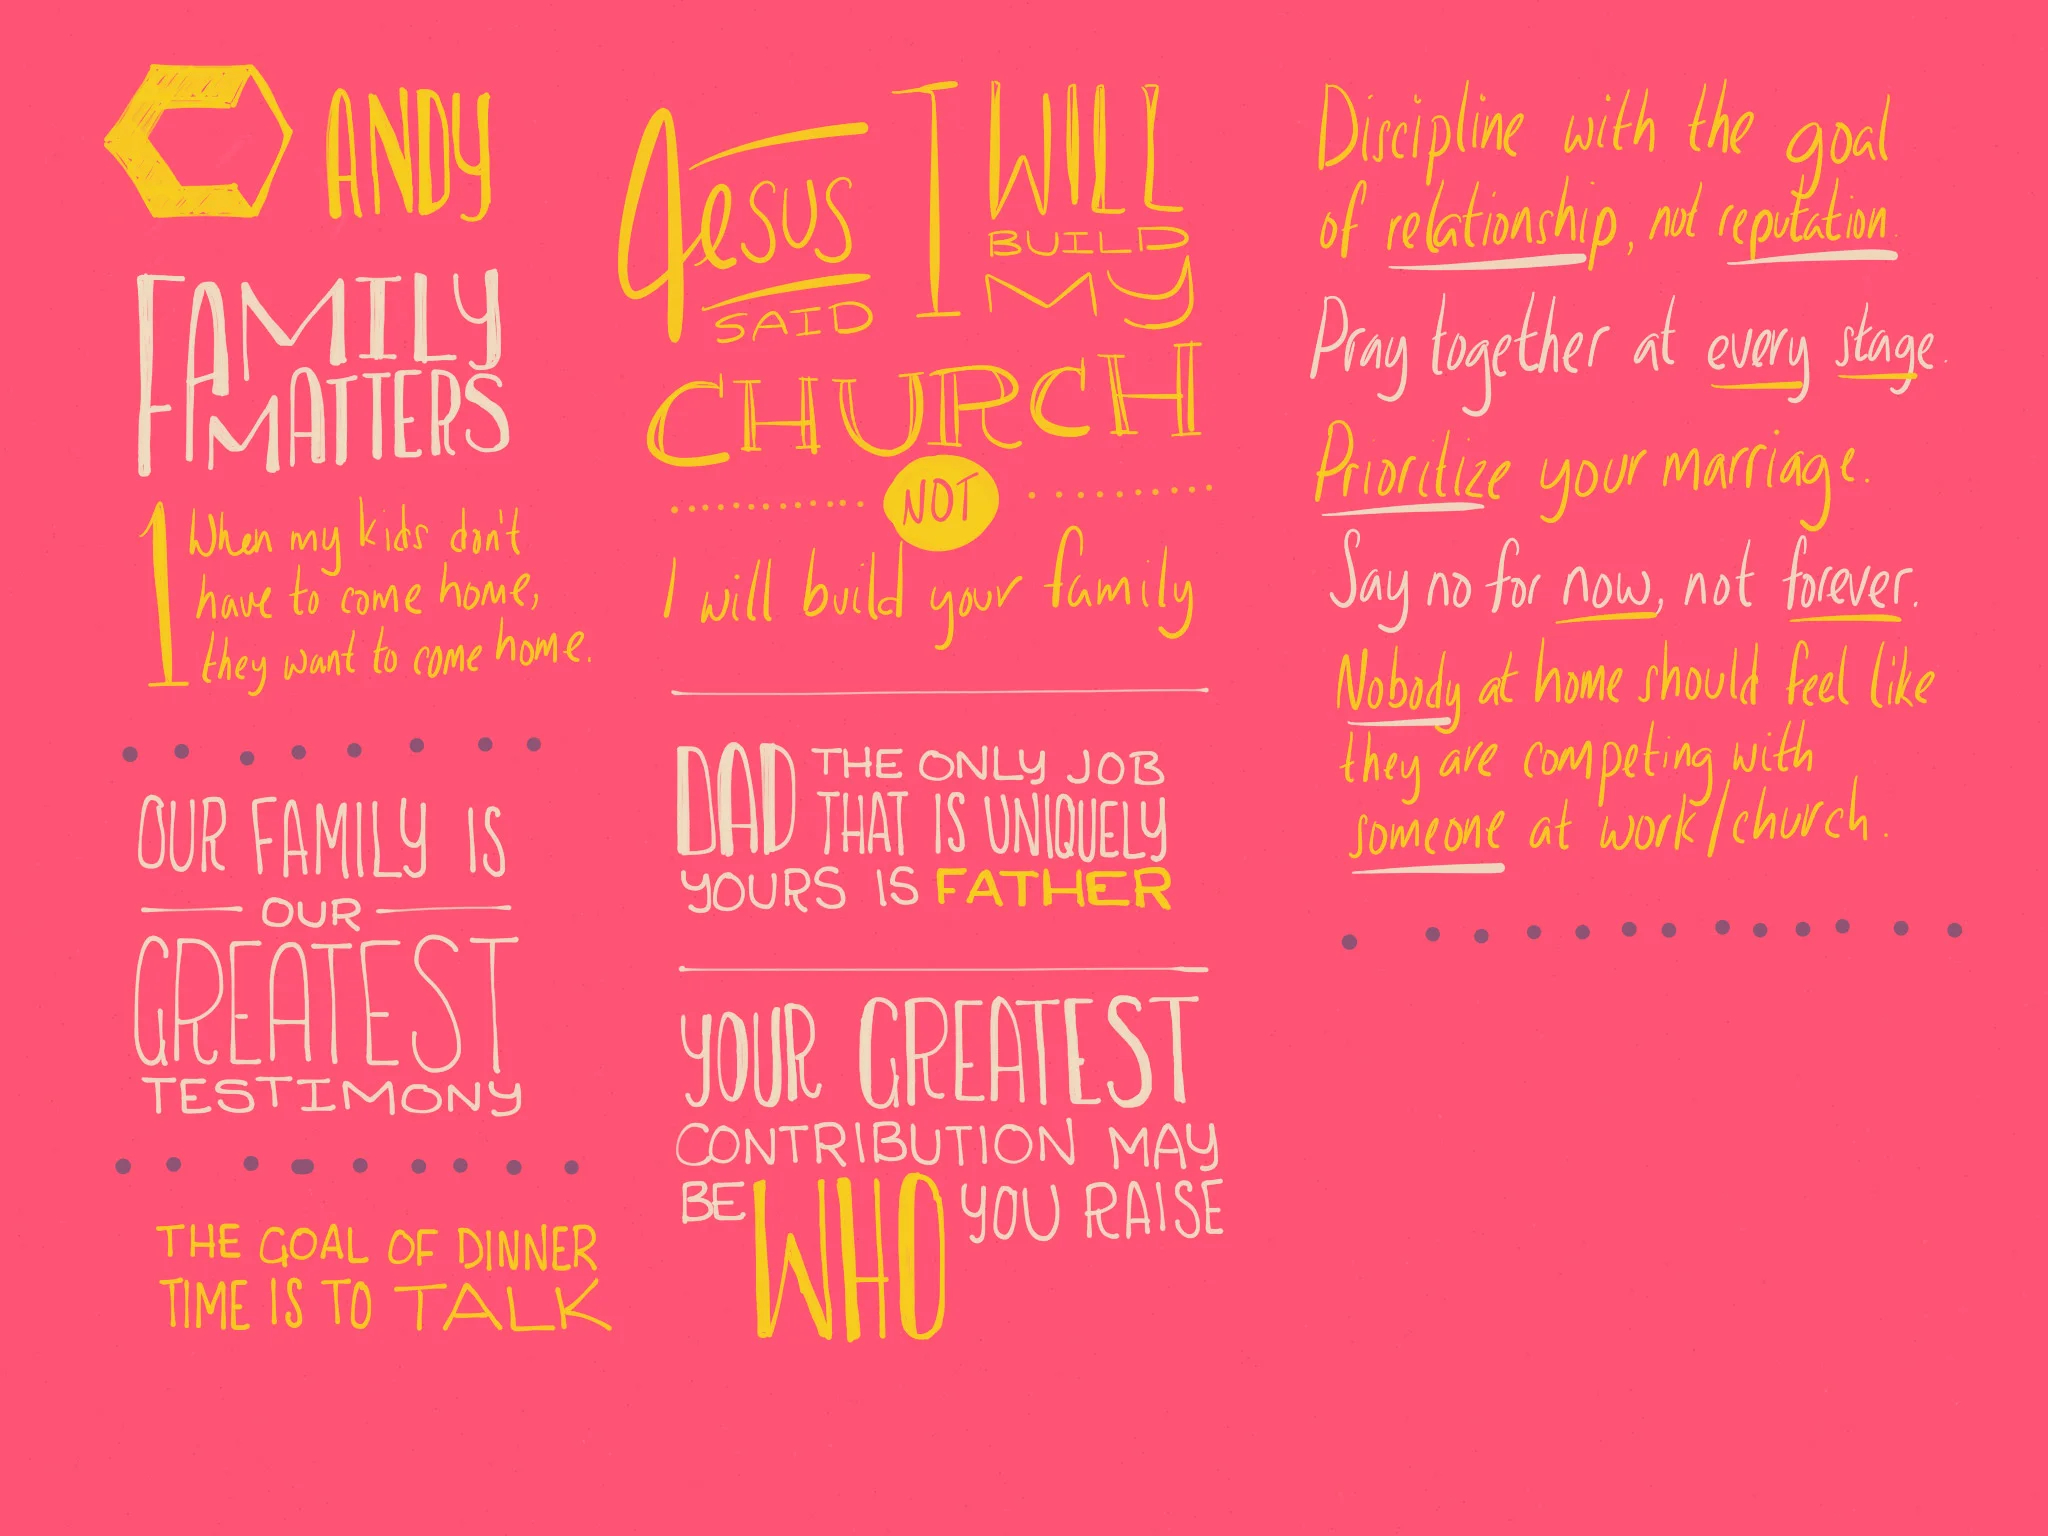 ANDY
FAMILY
MATTERS
1 When my kids don't
have to come home,
they want to come home.
OUR FAMILY IS
OUR
GREATEST
TESTIMONY
THE GOAL OF DINNER
TIME IS TO TALK
Jesus
SAID
I WILL
BUILD
MY
CHURCH
NOT
I will build your family
DAD THE ONLY JOB
THAT IS UNIQUELY
YOURS IS FATHER
YOUR GREATEST
CONTRIBUTION MAY
BE WHO YOU RAISE
Discipline with the goal
of relationship, not reputation.
Pray together at every stage.
Prioritize your marriage.
Say no for now, not forever.
Nobody at home should feel like
they are competing with
someone at work/church.